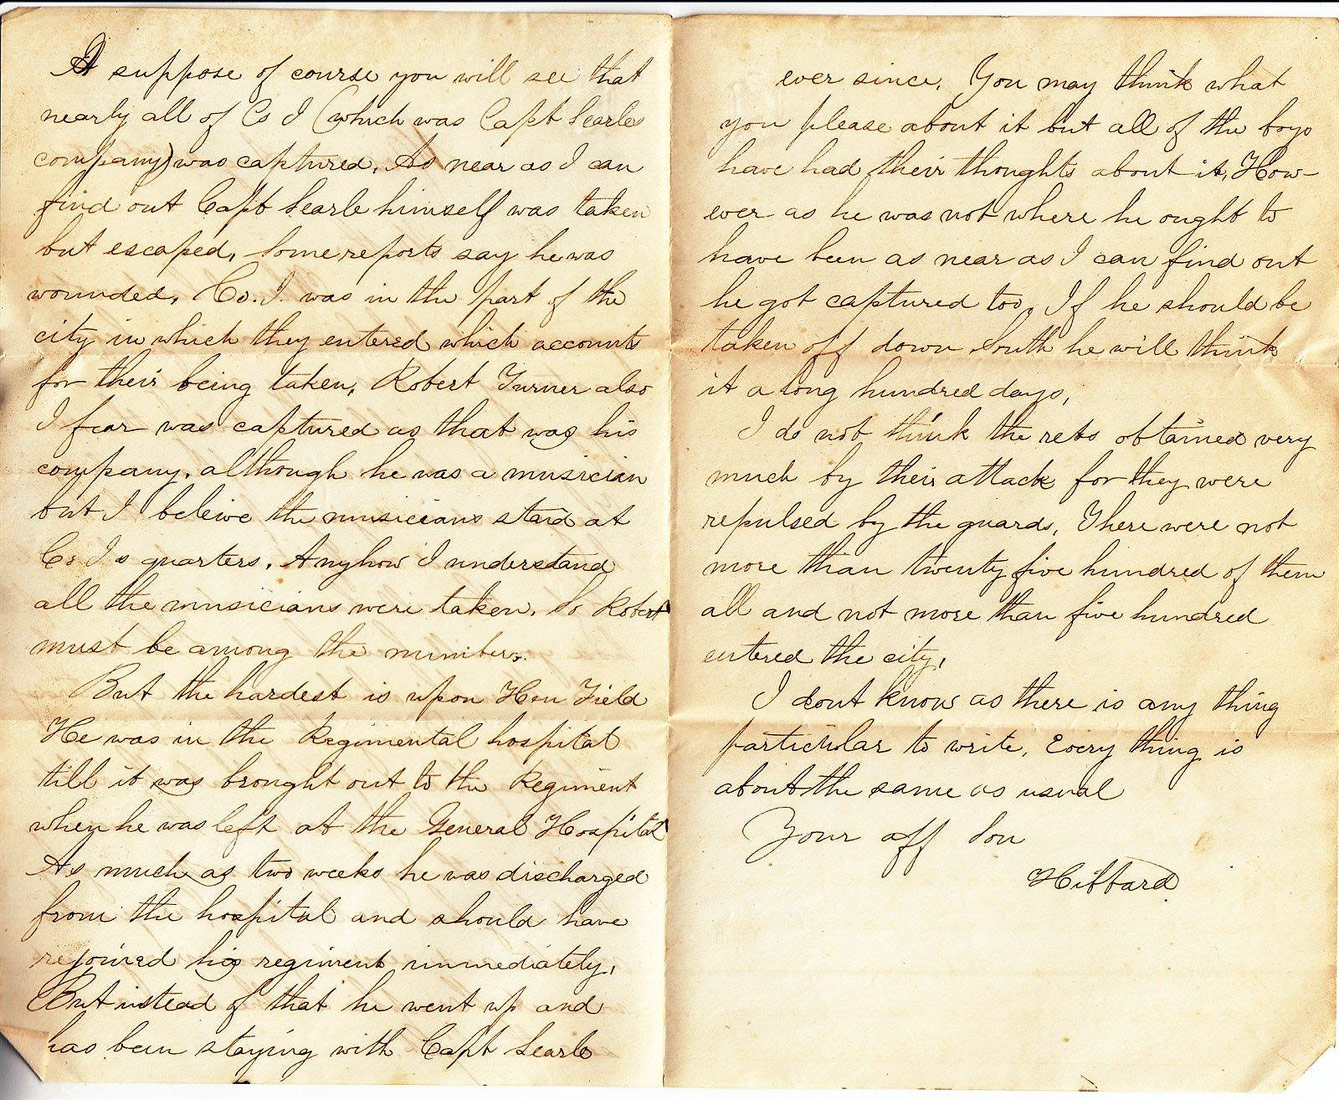 I suppose of course you will see that
nearly all of Co I (which was Capt Searles
company) was captured. As near as I can
find out Capt Searle himself was taken
but escaped. Some reports say he was
wounded. Co. I. was in the part of the
city in which they entered which accounts
for their being taken. Robert Turner also
I fear was captured as that was his
company. although he was a musician
but I beleive the musicians staid at
Co I s quarters. Anyhow I understand
all the musicians were taken. So Robert
must be among the number.
But the hardest is upon Hen Field
He was in the Regimental hospital
till it was brought out to the Regiment
when he was left at the General Hospital
As much as two weeks he was discharged
from the hospital and should have
rejoined his regiment immediately.
But instead of that he went up and
has been staying with Capt Searle
ever since. You may think what
you please about it but all of the boys
have had their thoughts about it. How-
ever as he was not where he ought to
have been as near as I can find out
he got captured too. If he should be
taken off down South he will think
it a long hundred days.
I do not think the rebs obtained very
much by their attack for they were
repulsed by the guards. There were not
more than twenty five hundred of them
all and not more than five hundred
entered the city.
I dont know as there is any thing
particular to write. Every thing is
about the same as usual
Your aff Son
Hibbard